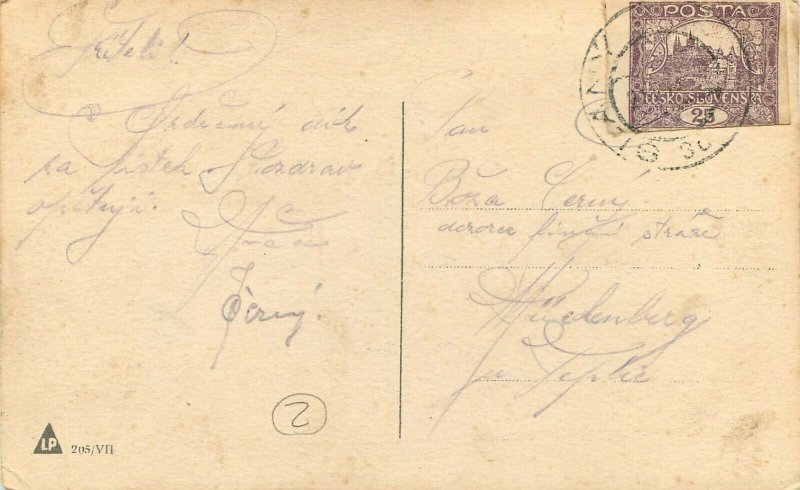 Příteli!
Srdečný dík
za lístek. Pozdrav
opětuji.
Černý.
2
LP 205/VII
POŠTA
ČESKO-SLOVENSKÁ
25
Pan
Boža Černý
dozorce finanční stráže
u Teplic